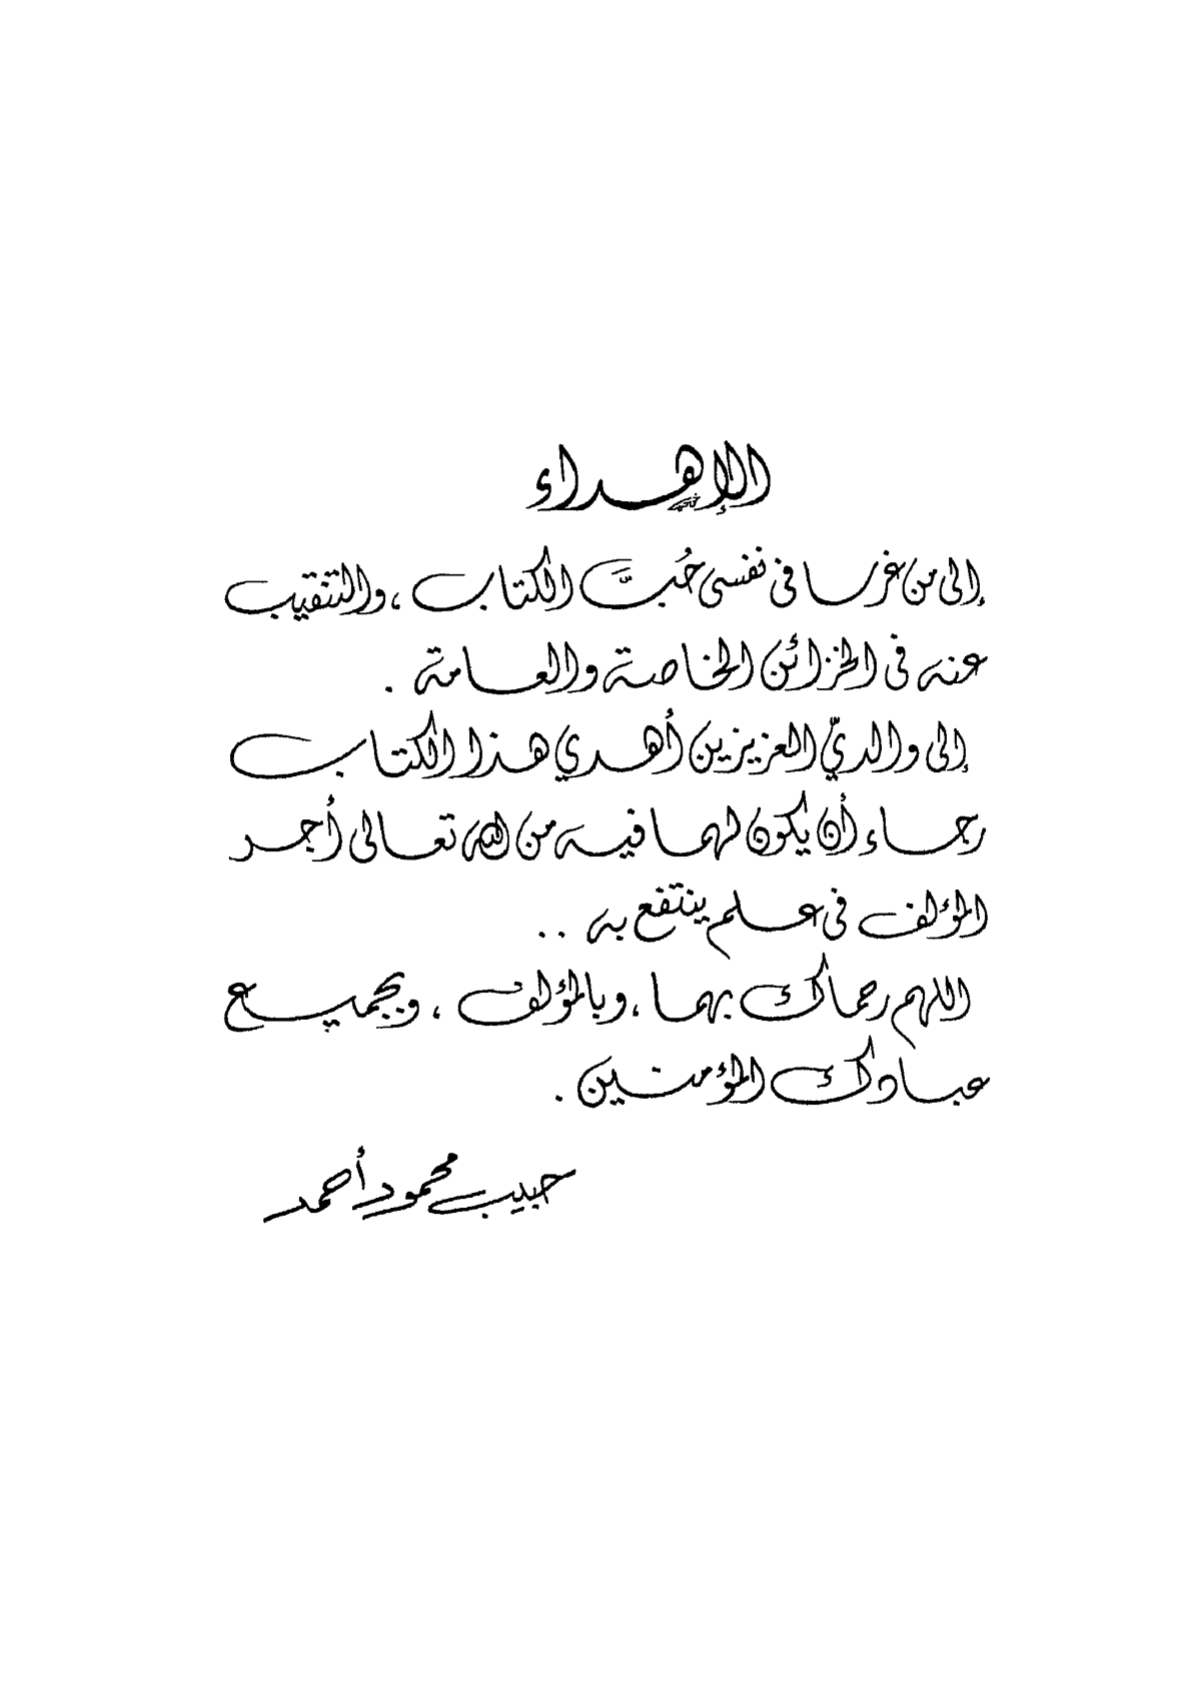 الإهداء
إلى من غرسا في نفسي حُبَّ الكتاب ، والتنقيب
عنه في الخزائن الخاصة والعامة .
إلى والديّ العزيزين أهدي هذا الكتاب
رجاء أن يكون لهما فيه من الله تعالى أجر
المؤلف في علم ينتفع به . .
اللهم رحماك بهما ، وبالمؤلف ، وبجميع
عبادك المؤمنين .
حبيب محمود أحمد